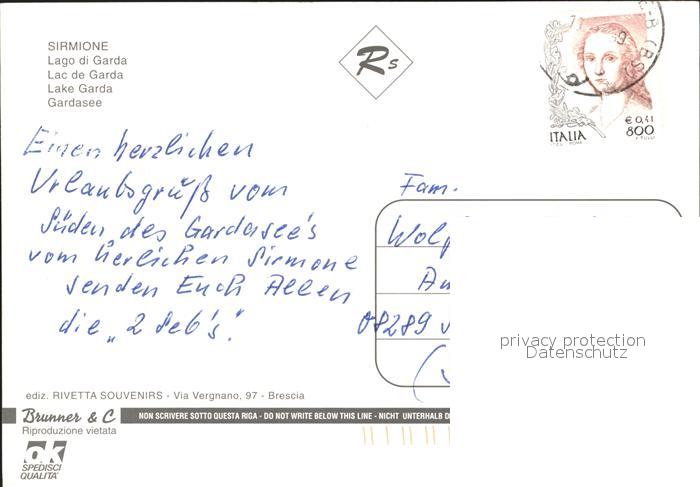 SIRMIONE
Lago di Garda
Lac de Garda
Lake Garda
Gardasee
Rs
€ 0,41
ITALIA 800
Einen herzlichen
Urlaubsgruß vom
Süden des Gardasee's
vom herlichen Sirmone
senden Euch Allen
die „2 Seb's".
Fam.
Wolf
08289
privacy protection
Datenschutz
ediz. RIVETTA SOUVENIRS - Via Vergnano, 97 - Brescia
Brunner & C
NON SCRIVERE SOTTO QUESTA RIGA - DO NOT WRITE BELOW THIS LINE - NICHT UNTERHALB D
Riproduzione vietata
ok
SPEDISCI
QUALITÀ